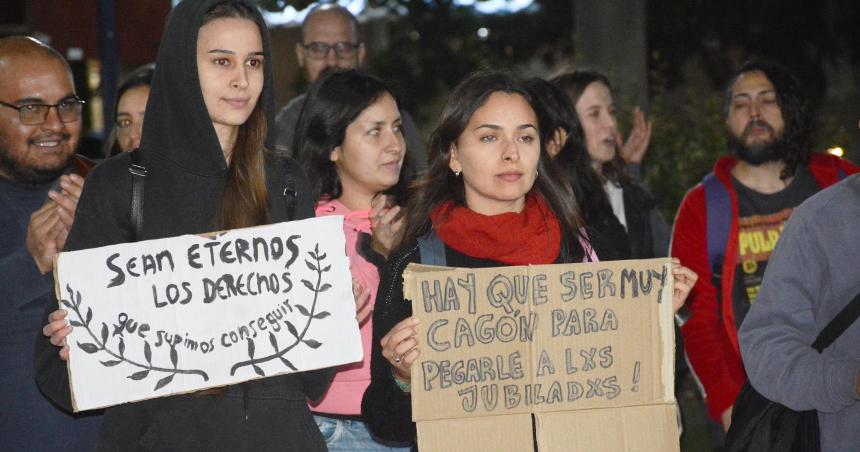 SEAN ETERNOS
LOS DERECHOS
QUE SUPIMOS CONSEGUIR
HAY QUE SER MUY
CAGÓN PARA
PEGARLE A LXS
JUBILADXS!